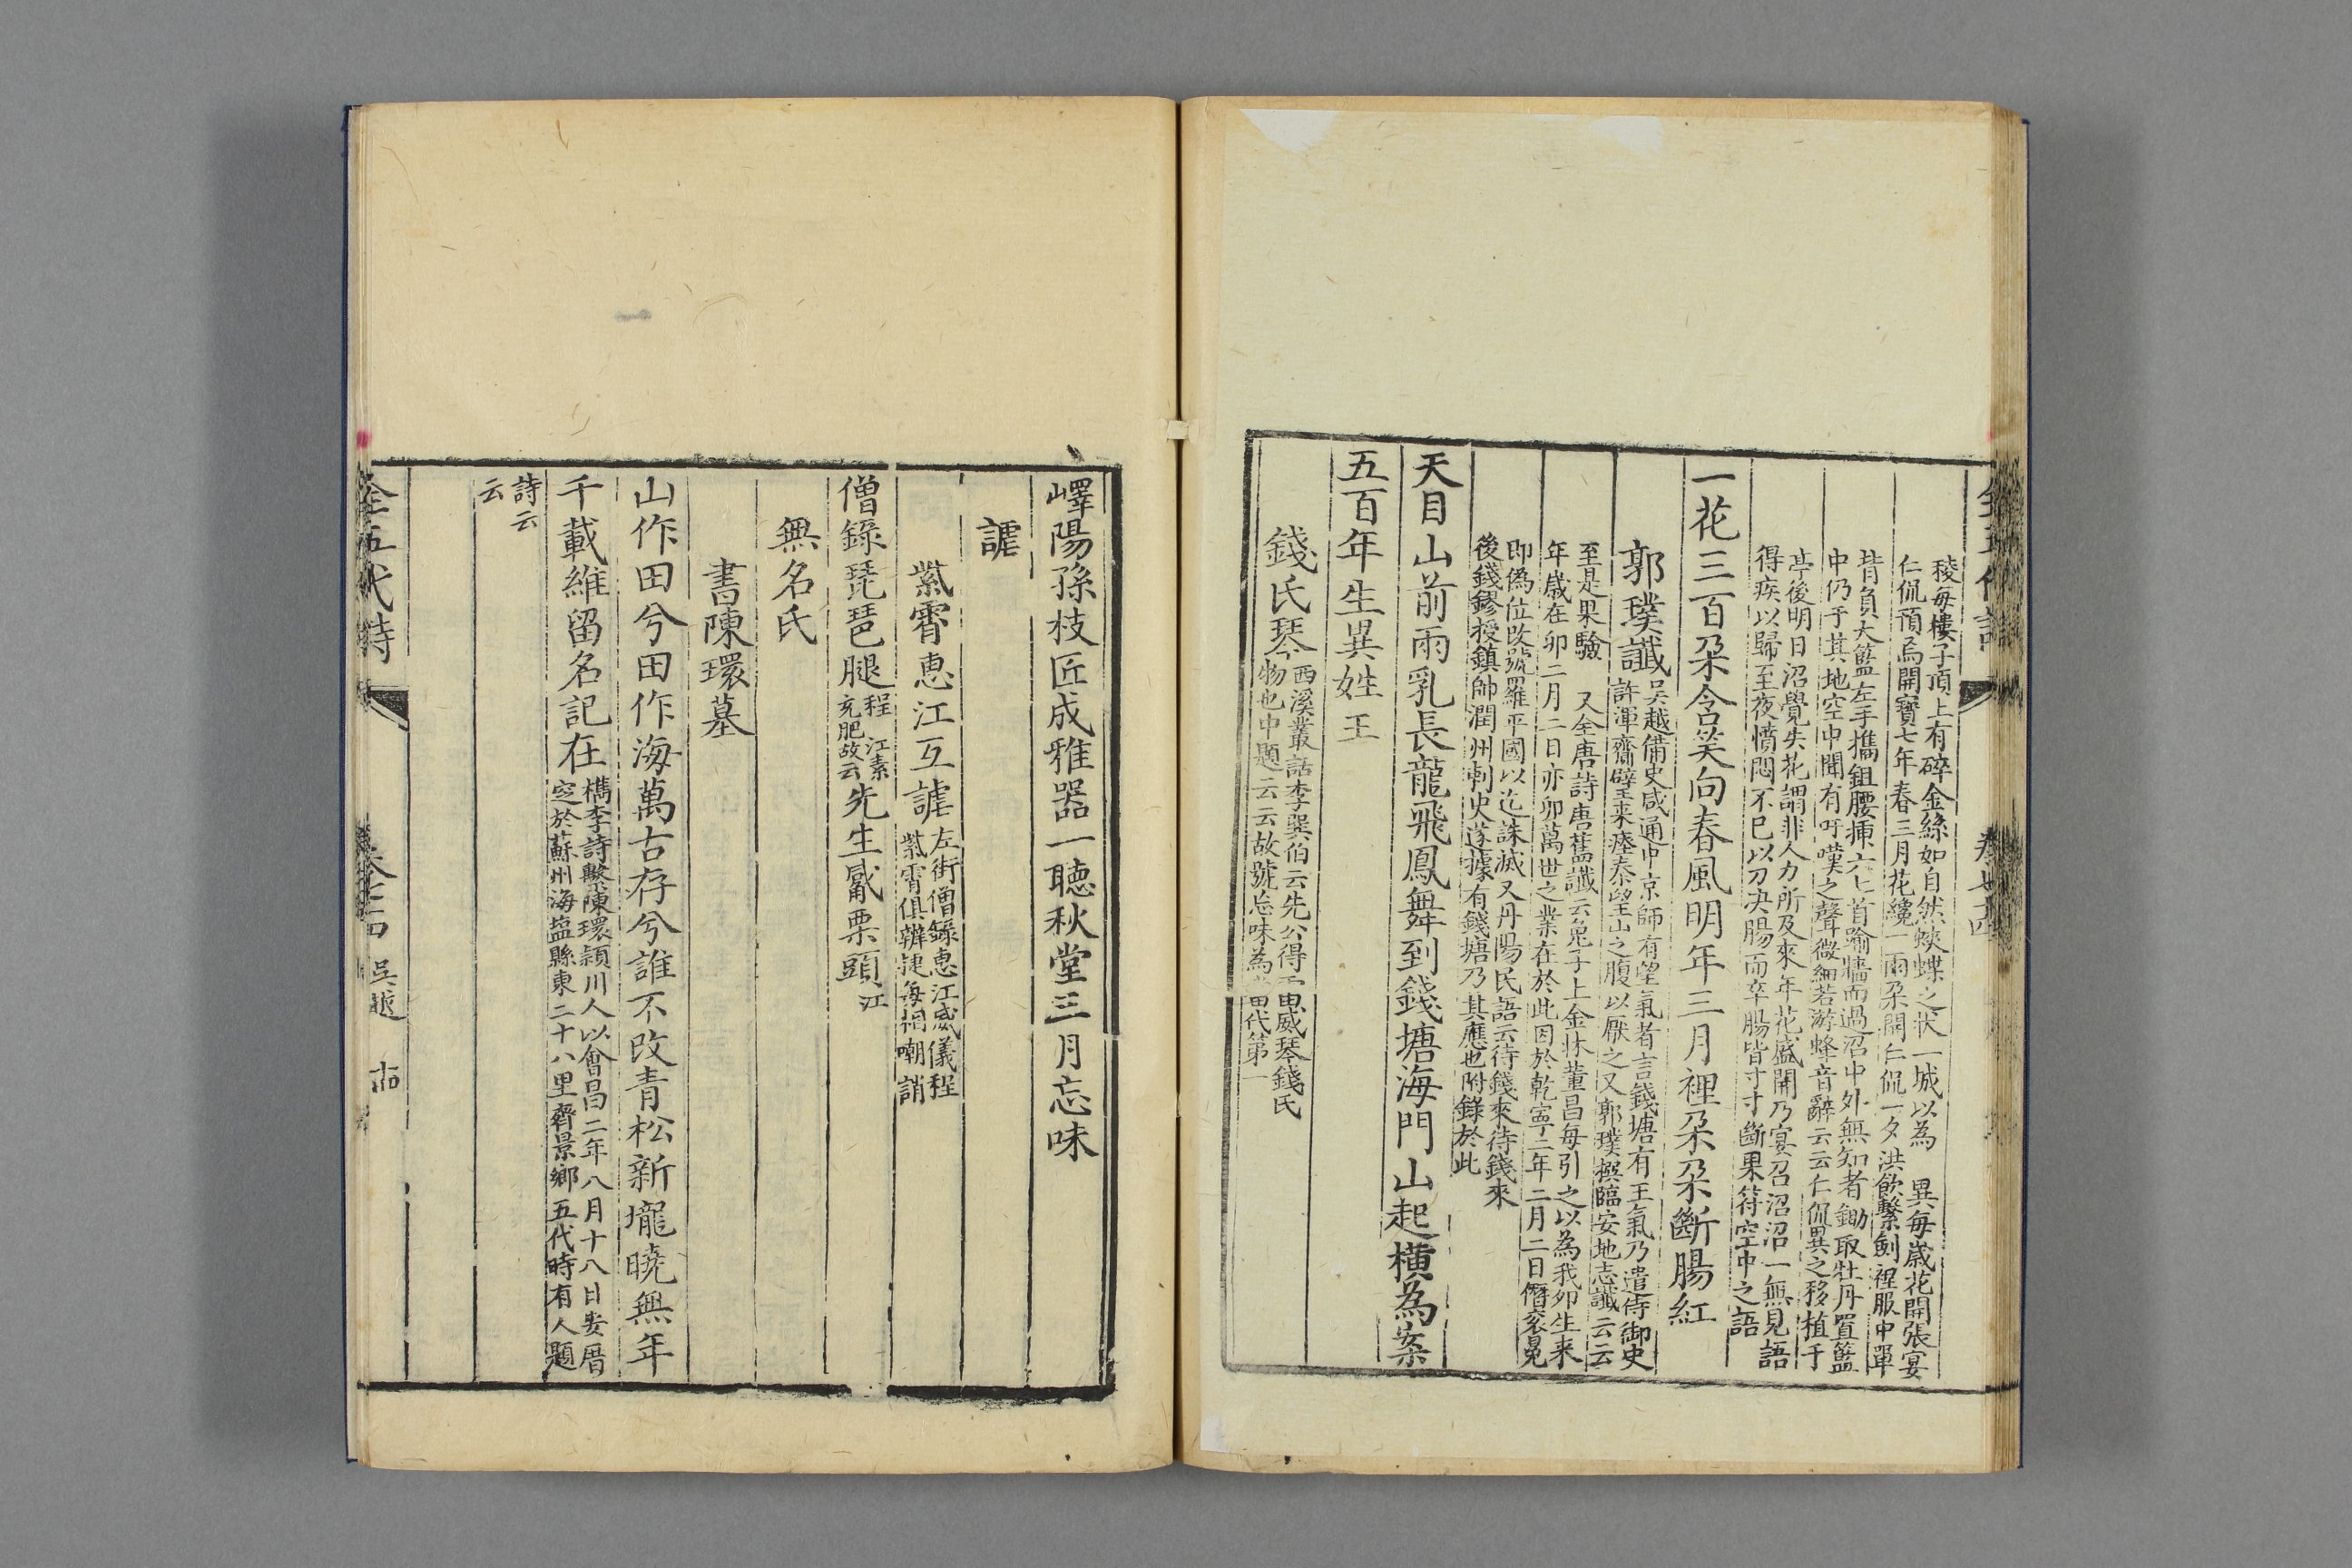 稜每樓子頂上有碎金絲如自然蛺蝶之狀一城以為異每歲花開張宴
仁侃預焉開寶七年春三月花纔一兩朶開仁侃一夕洪飲繫劍裎服中單
背負大籃左手攜鉏腰挿六七首踰牆而過沼中外無知者鋤取牡丹置籃
中仍于其地空中聞有吁嘆之聲微細若游蜂音辭云云仁侃異之移植于
亭後明日沼覺失花謂非人力所及來年花盛開乃宴召沼沼一無見語
得疾以歸至夜憤悶不已以刀决腸而卒腸皆寸寸斷果符空中之語
一花三百朶含笑向春風明年三月裡朶朶斷腸紅
郭璞讖
吳越備史咸通中京師有望氣者言錢塘有王氣乃遣侍御史
許渾齎璧来瘞泰望山之腹以厭之又郭璞撰臨安地志讖云云
至是果驗 又全唐詩唐舊讖云兔子上金牀董昌每引之以為我卯生来
年歲在卯二月二日亦卯萬世之業在於此因於乾寧二年二月二日僭衮冕
即偽位改號羅平國以迄誅滅又丹陽民語云待錢來待錢來
後錢鏐授鎮帥潤州刺史遂據有錢塘乃其應也附錄於此
天目山前兩乳長龍飛鳳舞到錢塘海門山起橫為案
五百年生異姓王
錢氏琴
西溪叢話李巽伯云先公得雷威琴錢氏
物也中題云云故號忘味為當代第一
嶧陽孫枝匠成雅器一聽秋堂三月忘味
謔
紫霄惠江互謔
左街僧錄惠江威儀程
紫霄俱辨捷每相嘲誚
僧錄琵琶腿
程 江素
充肥故云
先生觱栗頭
江
無名氏
書陳環墓
山作田兮田作海萬古存兮誰不改青松新壠曉無年
千載維留名記在
檇李詩繫陳環潁川人以會昌二年八月十八日安厝
窆於蘇州海鹽縣東二十八里齊景鄉五代時有人題
詩云
云
全五代詩
卷七十四 吳越